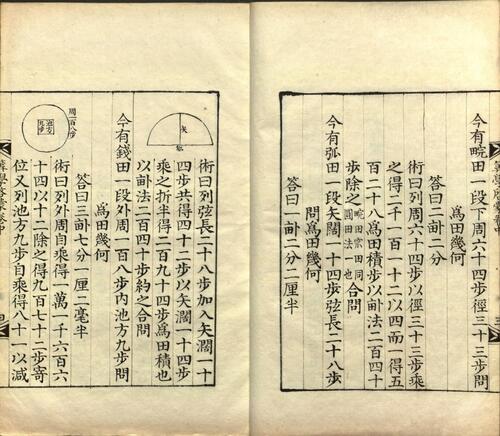 今有畹田一段下周六十四步徑三十三步問
爲田幾何
答曰二畝二分
術曰列周六十四步以徑三十三步乘
之得二千一百一十二以四而一得五
百二十八爲田積步以畝法二百四十
步除之
畹田宗田同
圓田法一也
合問
今有弧田一段矢闊一十四步弦長二十八步
問爲田幾何
答曰一畝二分二厘半
矢
弦
術曰列弦長二十八步加入矢濶一十
四步共得四十二步以矢濶一十四步
乘之折半得二百九十四步爲田積也
以畝法二百四十步約之合問
今有錢田一段外周一百八步內池方九步問
爲田幾何
答曰三畝七分一厘二毫半
周一百八步
池方
九步
術曰列外周自乘得一萬一千六百六
十四以十二除之得九百七十二步寄
位又列池方九步自乘得八十一以減